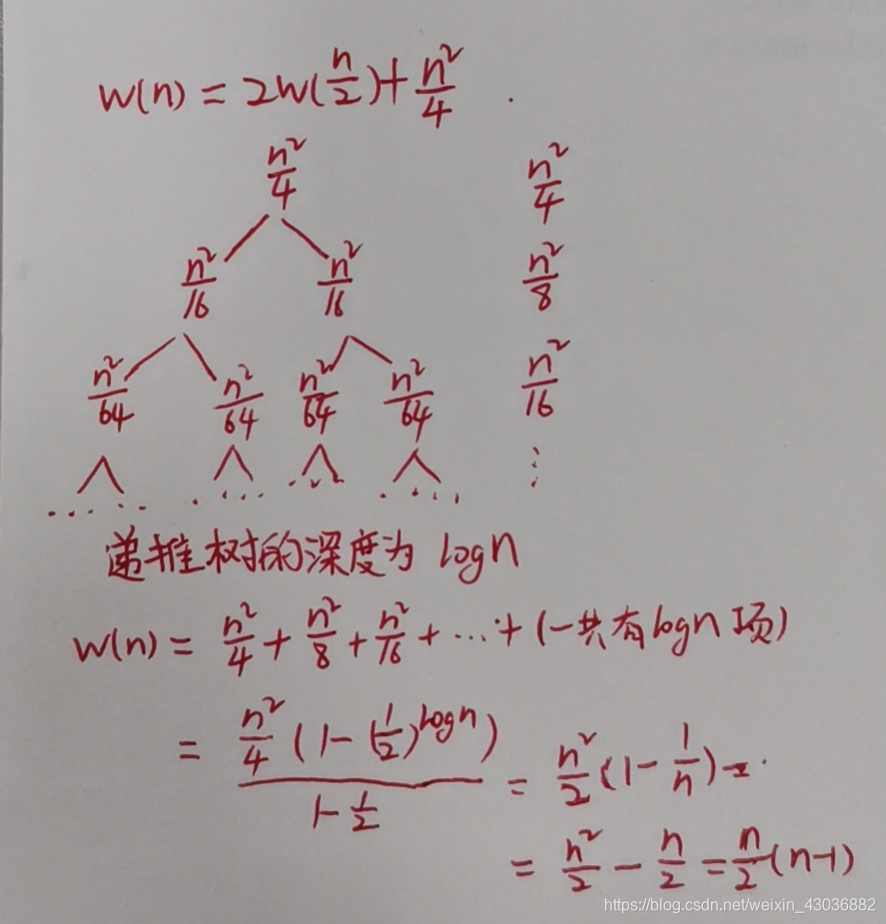 W(n) = 2W(n/2) + n²/4 .
n²/4 n²/4
n²/16 n²/16 n²/8
n²/64 n²/64 n²/64 n²/64 n²/16
..... ..... ..... ..... ⋮
递推树的深度为 logn
W(n) = n²/4 + n²/8 + n²/16 + ... + (一共有logn项)
= n²/4 (1-(1/2)^logn) / 1-1/2 = n²/2 (1-1/n)
= n²/2 - n/2 = n/2 (n-1)
https://blog.csdn.net/weixin_43036882